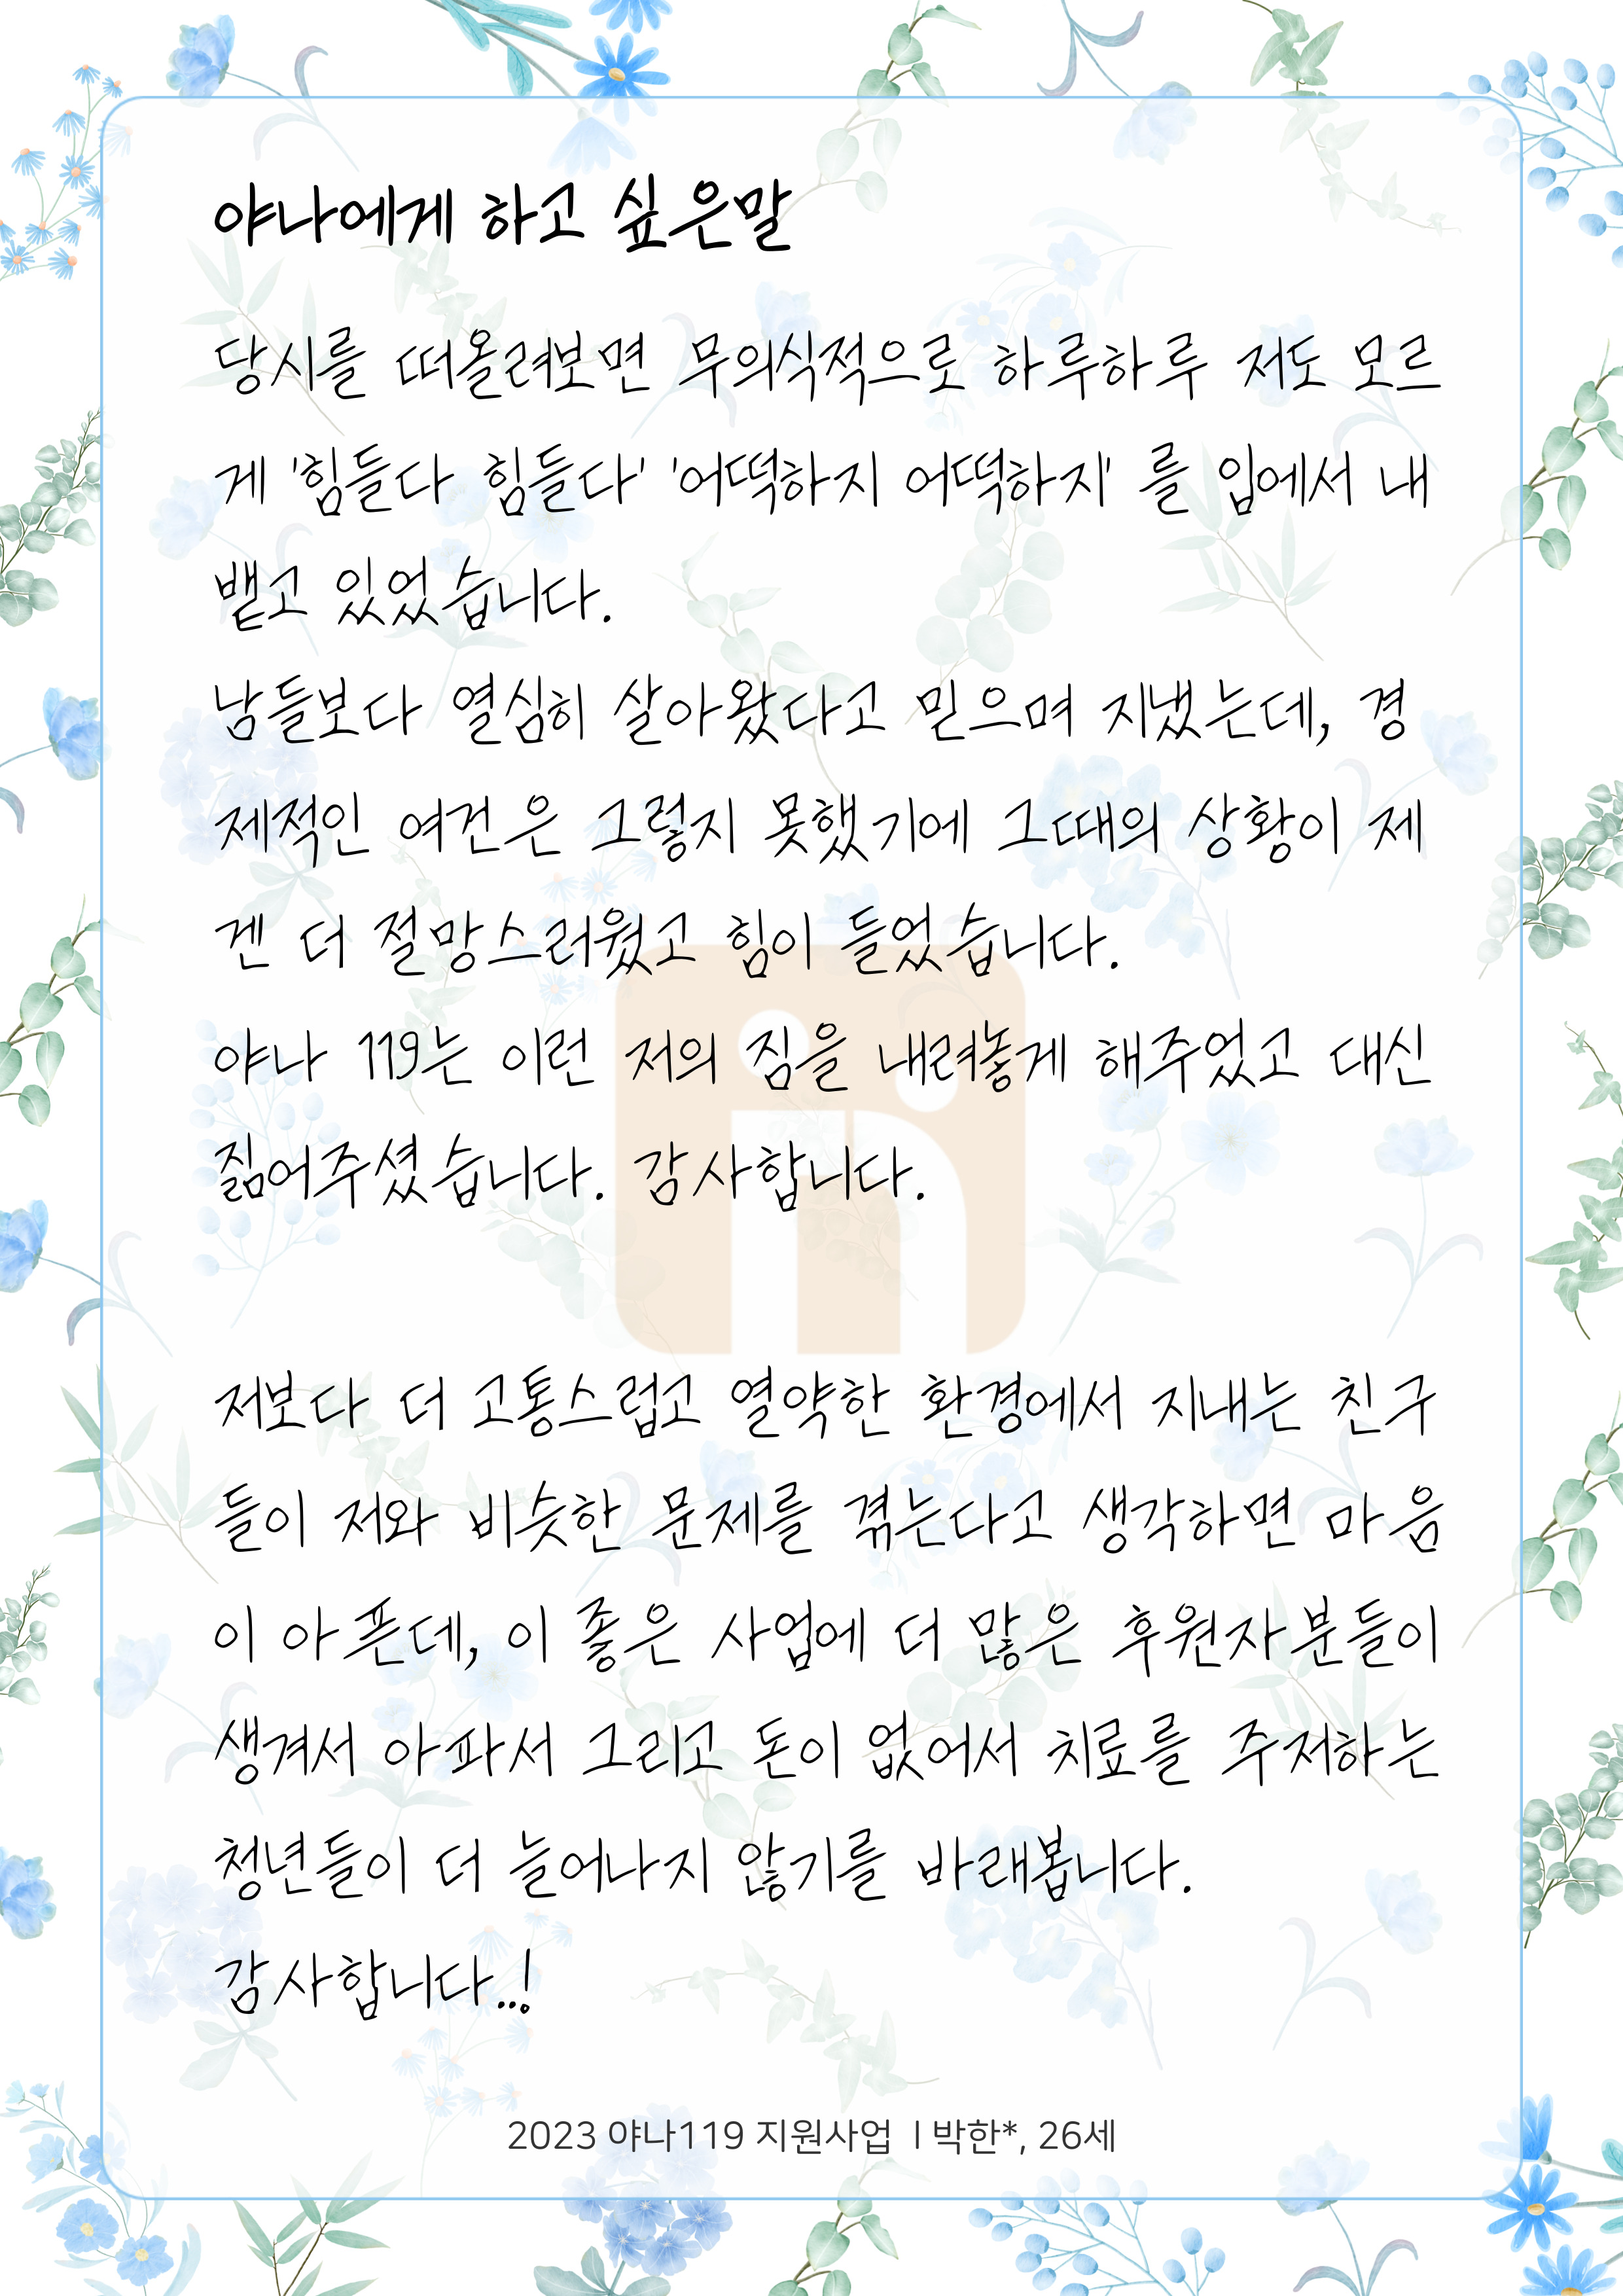 야나에게 하고 싶은말
당시를 떠올려보면 무의식적으로 하루하루 저도 모르
게 '힘들다 힘들다' '어떡하지 어떡하지' 를 입에서 내
뱉고 있었습니다.
남들보다 열심히 살아왔다고 믿으며 지냈는데, 경
제적인 여건은 그렇지 못했기에 그때의 상황이 제
겐 더 절망스러웠고 힘이 들었습니다.
야나 119는 이런 저의 짐을 내려놓게 해주었고 대신
짊어주셨습니다. 감사합니다.
저보다 더 고통스럽고 열약한 환경에서 지내는 친구
들이 저와 비슷한 문제를 겪는다고 생각하면 마음
이 아픈데, 이 좋은 사업에 더 많은 후원자분들이
생겨서 아파서 그리고 돈이 없어서 치료를 주저하는
청년들이 더 늘어나지 않기를 바래봅니다.
감사합니다..!
2023 야나119 지원사업 ㅣ박한*, 26세